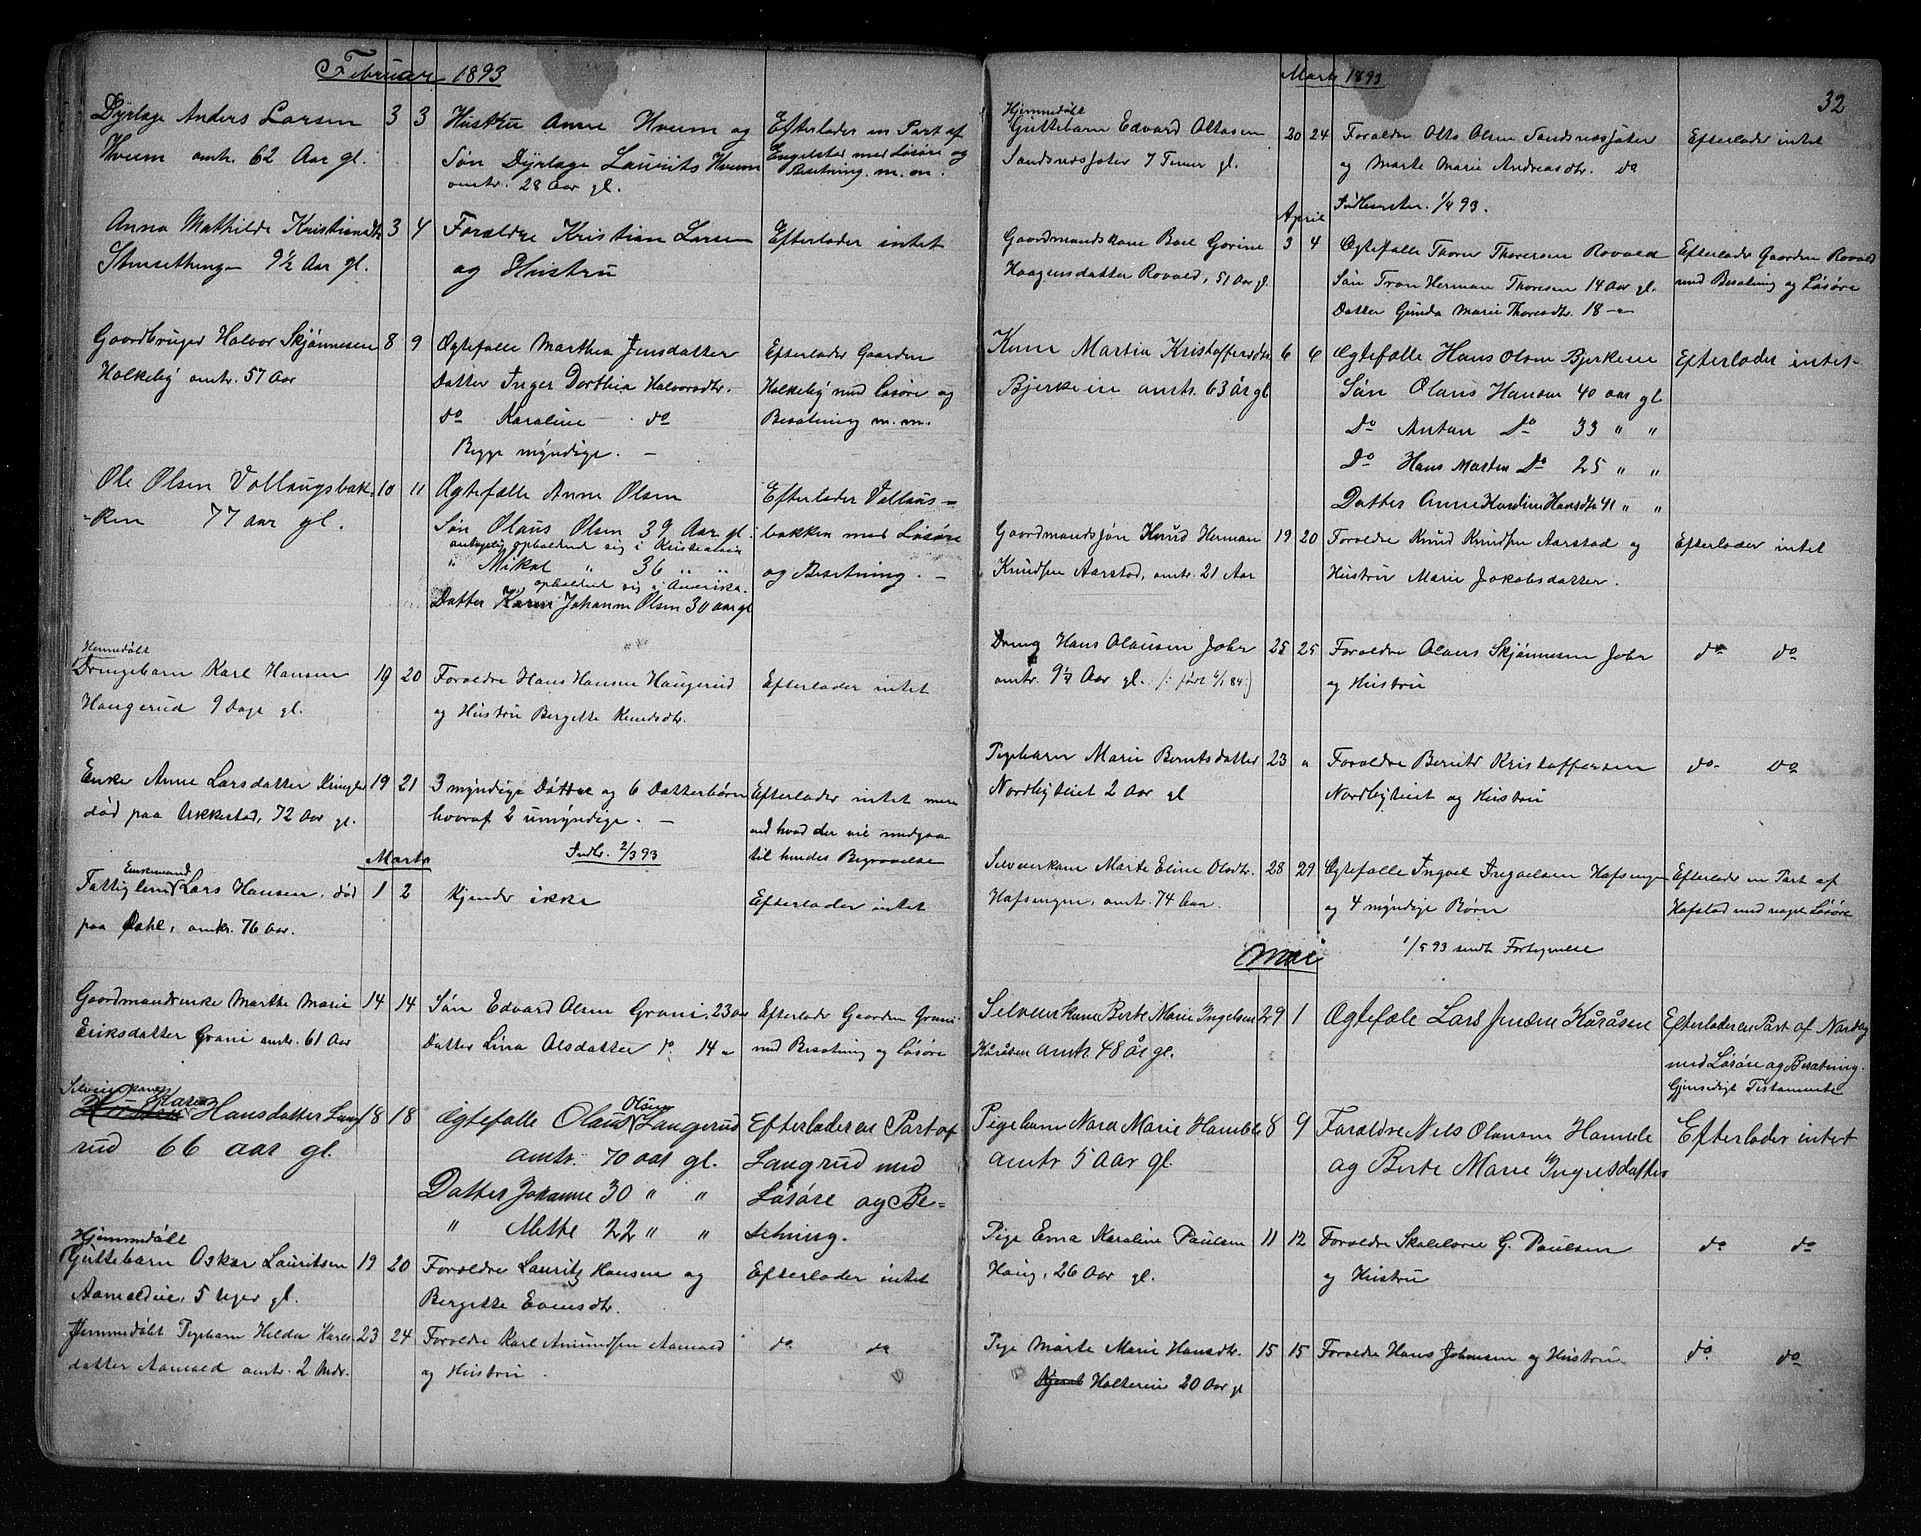 Februar 1893
Dyrlæge Anders Larsen 3 3 Hustru Anne Hvem og Efterlader en Part af
Hvem omtr. 62 Aar gl. Søn Dyrlæge Laurits Hvem Engelstad med Løsøre og
omtr. 28 Aar gl. Besetning m. m.
Anna Mathilde Kristiansdtr 3 4 Forældre Kristian Larsen Efterlader intet
9½ Aar gl. og Hustru
Gaardbruger Halvor Skjønnesen 8 9 Ægtefælle Marthea Jensdatter Efterlader Gaarden
Holkeby omtr. 57 Aar Datter Inger Dorthea Halvorsdtr. Holkeby med Løsøre og
do Karoline do Besætning m. m.
Begge myndige. —
Ole Olsen Vollaugsbak- 10 11 Ægtefælle Anne Olsen Efterlader Vollaus-
-ken 77 aar gl. Søn Olaus Olsen 39 Aar gl. bakken med Løsøre
antagelig opholdende sig i Kristiania
" Mikal " 36 " " og Besetning. —
opholdende sig i Amerika.
Datter Karen Johanne Olsen 30 aar gl
Hjemmedøbt
Drengebarn Karl Hansen 19 20 Forældre Hans Hansen Haugerud Efterlader intet
Haugerud 9 Dage gl. og Hustru Bergette Knudsdtr.
Enke Anne Larsdatter Kringler 19 21 3 myndige Døttre og 6 Datterbørn Efterlader intet mere
død paa Ukkestad, 72 Aar gl. hvoraf 2 umyndige. — end hvad der vil medgaa
Marts Indb. 2/3 93 til hendes Begravelse
Enkemand
Fattiglem Lars Hansen, død 1 2 Kjender ikke Efterlader intet
paa Dahl, omtr. 76 Aar.
Gaardmandsenke Marthe Marie 14 14 Søn Edvard Olsen Grani, 23 aar Efterlader Gaarden Grani
Eriksdatter Grani omtr. 61 Aar Datter Lina Olsdatter do 14 " med Besætning og Løsøre
Selveierkone Karen
Hansdatter Lang 18 18 Ægtefælle Olaus Olsen Langerud Efterlader en Part af
rud 66 aar gl. omtr. 70 aar gl. Langrud med
Datter Johanne 30 " " Løsøre og Be=
" Methe 22 " " setning.
Hjemmedøbt
Guttebarn Oskar Lauritsen 19 20 Forældre Lauritz Hansen og Efterlader intet
5 Uger gl. Bergette Evensdtr.
Hjemmedøbt Pigebarn Helda Karls- 23 24 Forældre Karl Amundsen Aamold do do
datter Aamold omtr. 2 Mdr. og Hustru
Marts 1893
32
Hjemmedøbt
Guttebarn Edvard Ottosen 20 24 Forældre Otto Olsen Sandsnæssjøter Efterlader intet
Sandsnæssjøter 7 Timer gl. og Marte Marie Andreasdtr. do
1/4 93.
April
Gaardmandskone Boel Gorine 3 4 Ægtefælle Thorer Thoresen Rovold Efterlader Gaarden Rovold
Haagensdatter Rovold, 51 Aar gl. Søn Tron Herman Thoresen 14 Aar gl. med Besætning og Løsøre
Datter Gunda Marie Thoresdtr. 18 — "
Kone Martia Kristoffersdtr 6 6 Ægtefælle Hans Olsen Bjerkeie Efterlader intet-
Bjerkeie omtr. 63 år gl Søn Olaus Hansen 40 aar gl
Do Anton Do 33 " "
Do Hans Martin Do 25 " "
Datter Anne Karoline Hansdtr 41 " "
Gaardmandssøn Knud Herman 19 20 Forældre Knud Knudsen Aarstad og Efterlader intet
Knudsen Aarstad, omtr. 21 Aar Hustru Marie Jakobsdatter.
Dreng Hans Olausen Johr 25 25 Forældre Olaus Skjønnesen Johr do do
omtr. 9¼ Aar gl. /: født 6/1 84 :/ og Hustru
Pigebarn Marie Berntsdatter 23 " Forældre Berntr Kristoffersen do do
Nordbyeiet 2 Aar gl Nordbyeiet og Hustru
Selveierkone Marte Eline Olsdtr. 28 29 Ægtefælle Ingvel Ingvelsen Hafsengen Efterlader en Part af
Hafsengen, omtr. 74 Aar. og 4 myndige Børn Hafstad med noget Løsøre
1/5 93 sendt Fortegnelse
Mai
Selveierkone Berte Marie Ingelsen 29 1 Ægtefæle Lars Jensen Kåråsen Efterlader en Part af Nordby
Kåråsen omtr. 48 år gl. med Løsøre og Besætning.
Gjensidigt Testamente
Pigebarn Nora Marie Hamble 8 9 Forældre Nils Olausen Hamble Efterlader intet
omtr 5 Aar gl. og Berte Marie Ingvelsdatter
Pige Erna Karoline Paulsen 11 12 Forældre Skolelærer G. Paulsen do do
Haug, 26 Aar gl. og Hustru
Pige Marte Marie Hansdtr. 15 15 Forældre Hans Johansen og Hustru do do
Holtereie 20 Aar gl